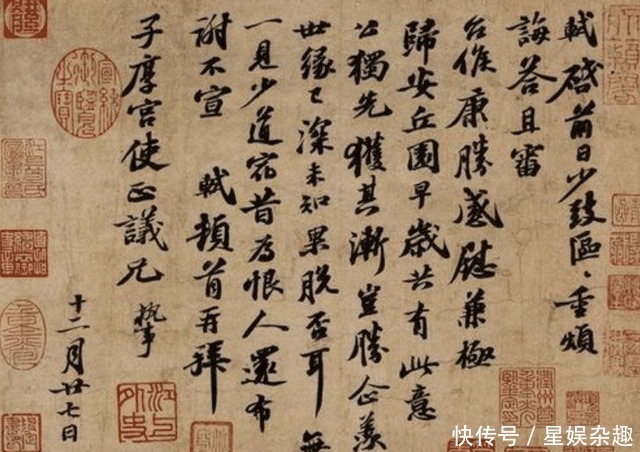 軾啓前日少致區、重煩
誨答且審
台候康勝感慰兼極
歸安丘園早歲共有此意
公獨先獲其漸豈勝企羨
世緣已深未知果脫否耳無
一見少道宿昔為恨人還布
謝不宣 軾頓首再拜
子厚宮使正議兄 執事
十二月廿七日
快传号/星娱杂趣